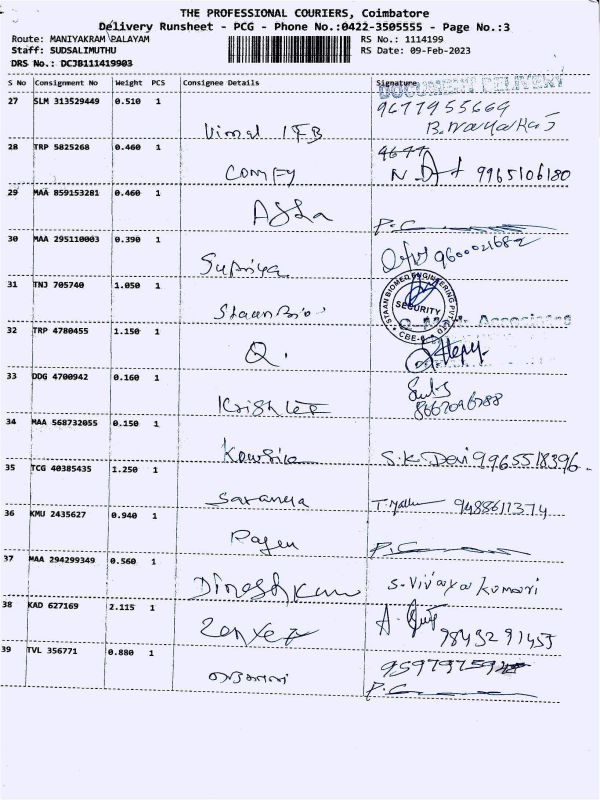 THE PROFESSIONAL COURIERS, Coimbatore
Delivery Runsheet - PCG - Phone No.:0422-3505555 - Page No.:3
Route: MANIYAKRAM PALAYAM
RS No.: 1114199
Staff: SUDSALIMUTHU
RS Date: 09-Feb-2023
DRS No.: DCJB111419903
S No Consignment No Weight PCS Consignee Details Signature
DOCUMENT DELIVERY
27 SLM 313529449 0.510 1
9677955669
Vimal IFB
28 TRP 5825268 0.460 1
COMFY 9965106180
29 MAA 859153281 0.460 1
P.C
30 MAA 295110003 0.390 1
Supriya 9600021682
31 TNJ 705740 1.050 1
STAAN BIOMED ENGINEERING PVT LTD
SECURITY
CBE-6
StaanBio
Associates
32 TRP 4780455 1.150 1
Q.
33 DDG 4700942 0.160 1
8667096788
34 MAA 568732055 0.150 1
Kowsika S.K. Devi 9965518396
35 TCG 40385435 1.250 1
Saranya 9488611374
36 KMU 2435627 0.940 1
P.C
37 MAA 294299349 0.560 1
Dineshkum S. Vivaya Kumari
38 KAD 627169 2.115 1
9843291455
39 TVL 356771 0.880 1
P.C